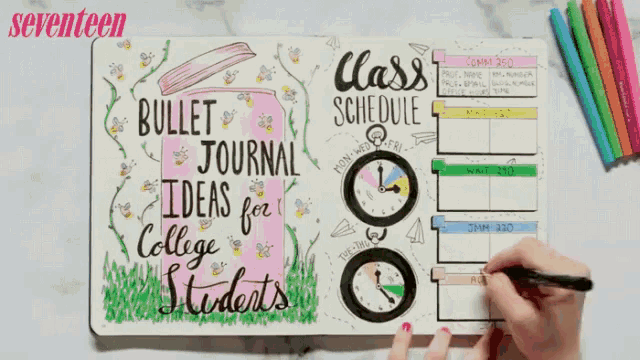 seventeen
BULLET
JOURNAL
IDEAS for
College
Students
Class
SCHEDULE
MON·WED·FRI
TUE·THU
COMM 250
PROF. NAME
PROF. EMAIL
OFFICE HOURS
RM. NUMBER
TIME
WRIT 290
JMM 220